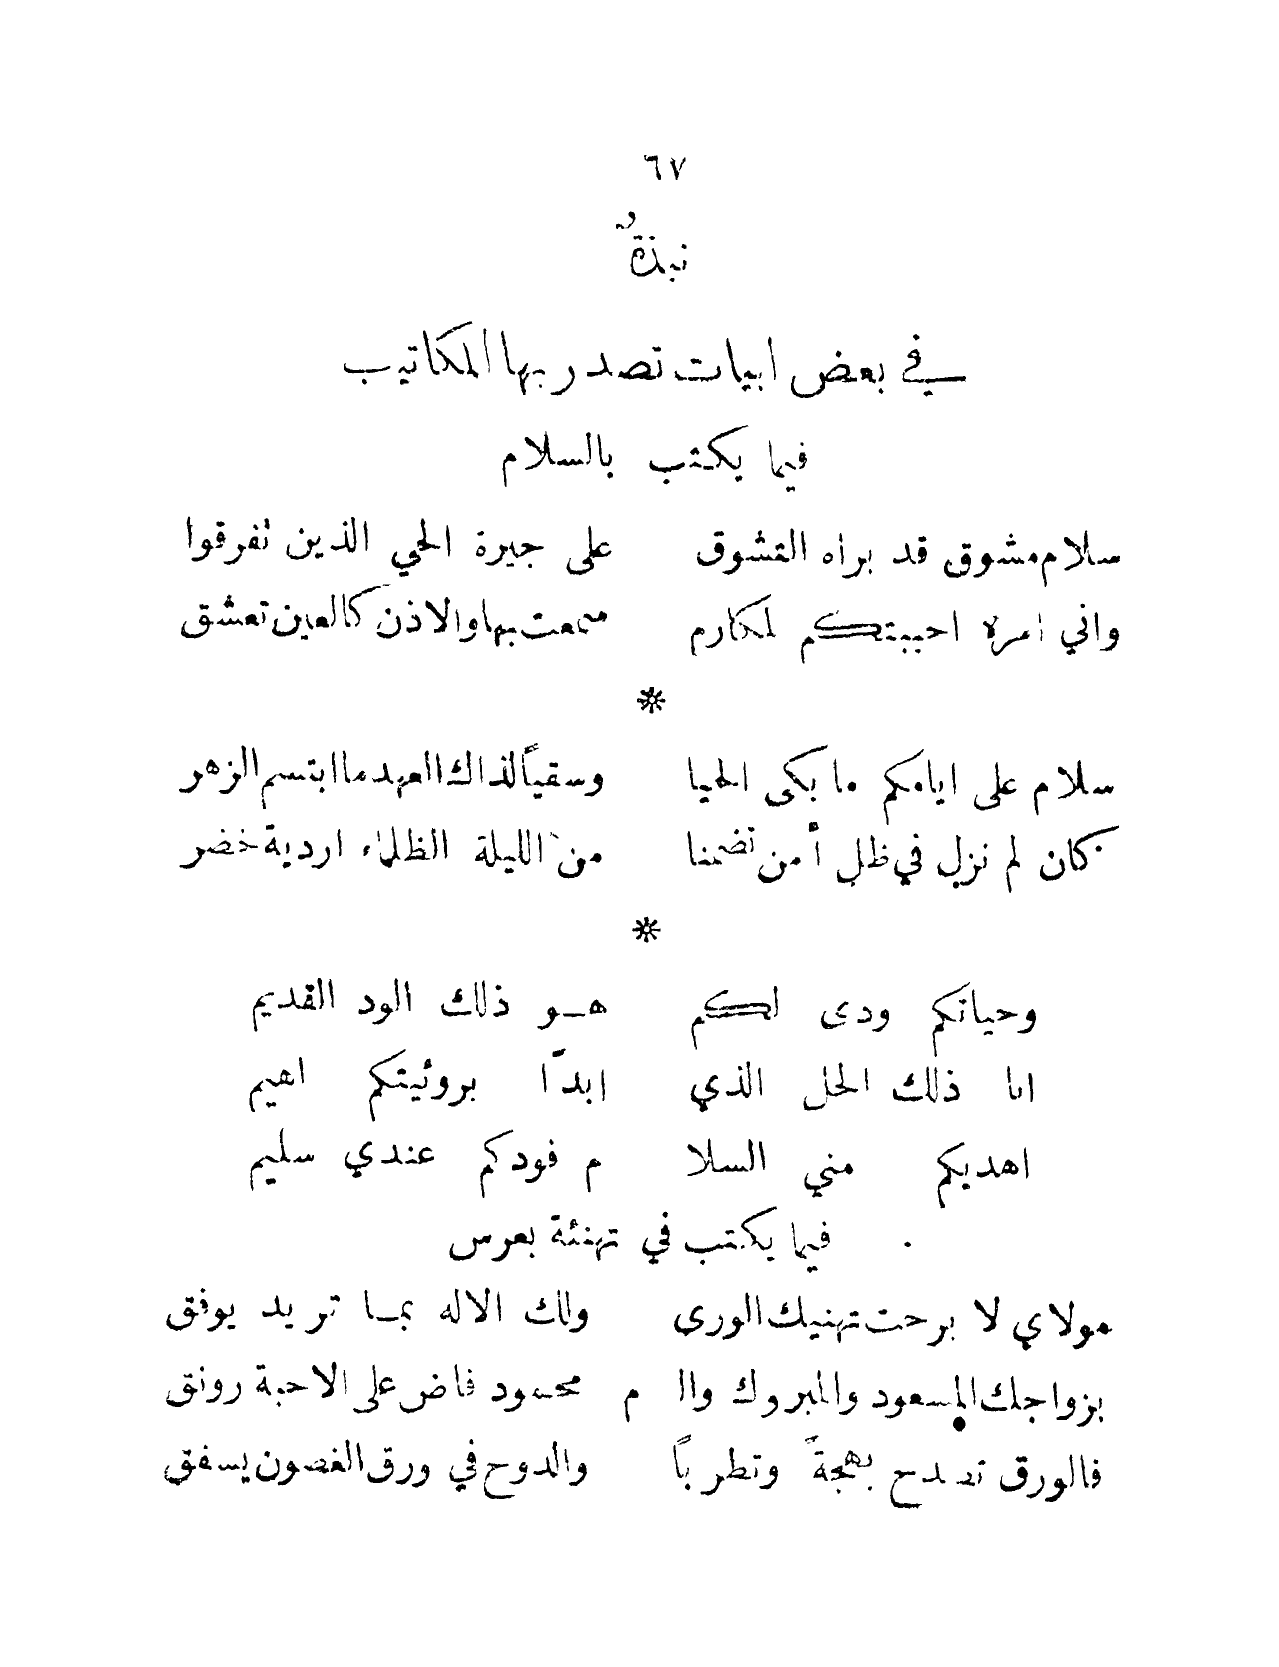 ٦٧
نبذةٌ
في بعض ابيات تصدر بها المكاتيب
فيما يكتب بالسلام
سلام مشوق قد براه التشوق على جيرة الحي الذين تفرقوا
واني امرء احببتكم لمكارم سمعت بها والاذن كالعين تعشق
*
سلام على ايامكم ما بكى الحيا وسقياً لذاك العهد ما ابتسم الزهر
كان لم نزل في ظل أمن تضمنا من الليلة الظلماء اردية خضر
*
وحياتكم ودى لكم هو ذلك الود القديم
انا ذلك الخل الذي ابدًا بروئيتكم اهيم
اهديكم مني السلا م فودكم عندي سليم
فيما يكتب في تهنئة بعرس
مولاي لا برحت تهنيك الورى ولك الاله بما تريد يوفق
بزواجك المسعود والمبروك وال م محسود فاض على الاحبة رونق
فالورق تصدح بهجةً وتطرباً والدوح في ورق الغصون يسفق